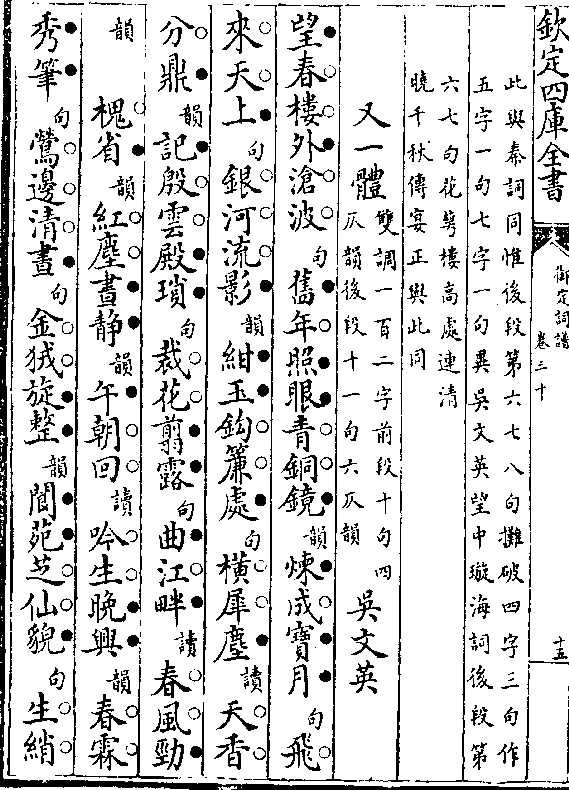 欽定四庫全書
御定詞譜
卷三十
十五
此與秦詞同惟後段第六七八句攤破四字三句作
五字一句七字一句異吳文英望中璇海詞後段第
六七句花萼樓高處連清
曉千秋傳宴正與此同
又一體
雙調一百二字前段十句四
仄韻後段十一句六仄韻
吳文英
望春樓外滄波句舊年照眼青銅鏡韻煉成寶月句飛
來天上句銀河流影韻紺玉鈎簾處句橫犀麈讀天香
分鼎韻記殷雲殿瑣句裁花翦露句曲江畔讀春風勁
韻
槐省韻紅塵晝静韻午朝回讀吟生晚興韻春霖
秀筆句鶯邊清晝句金狨旋整韻閬苑芝仙貌句生綃